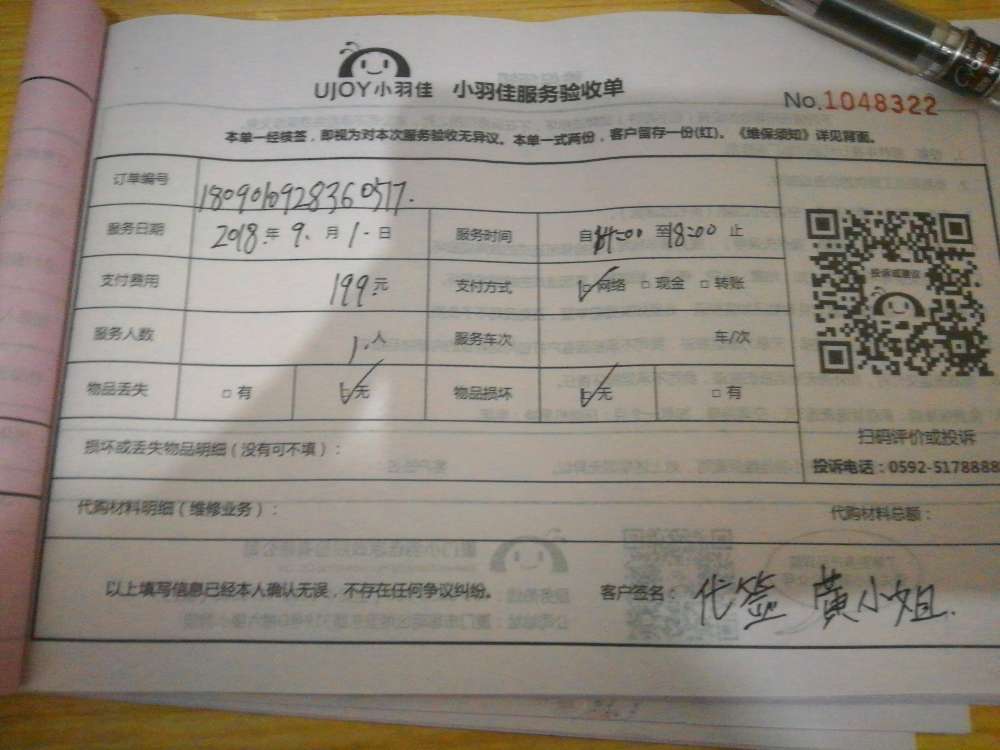 UJOY小羽佳 小羽佳服务验收单
No.1048322
本单一经核签，即视为对本次服务验收无异议。本单一式两份，客户留存一份(红)。《维保须知》详见背面。
订单编号 1809010928360517.
服务日期 2018年9.月1.日 服务时间 自14:00至18:00止
支付费用 199元 支付方式 ☑网络 □现金 □转账
投诉或建议
服务人数 1.人 服务车次 车/次
物品丢失 □有 ☑无 物品损坏 ☑无 □有
扫码评价或投诉
损坏或丢失物品明细（没有可不填）：
投诉电话：0592-5178888
代购材料明细（维修业务）： 代购材料总额：
以上填写信息已经本人确认无误，不存在任何争议纠纷。 客户签名：代签 黄小姐.